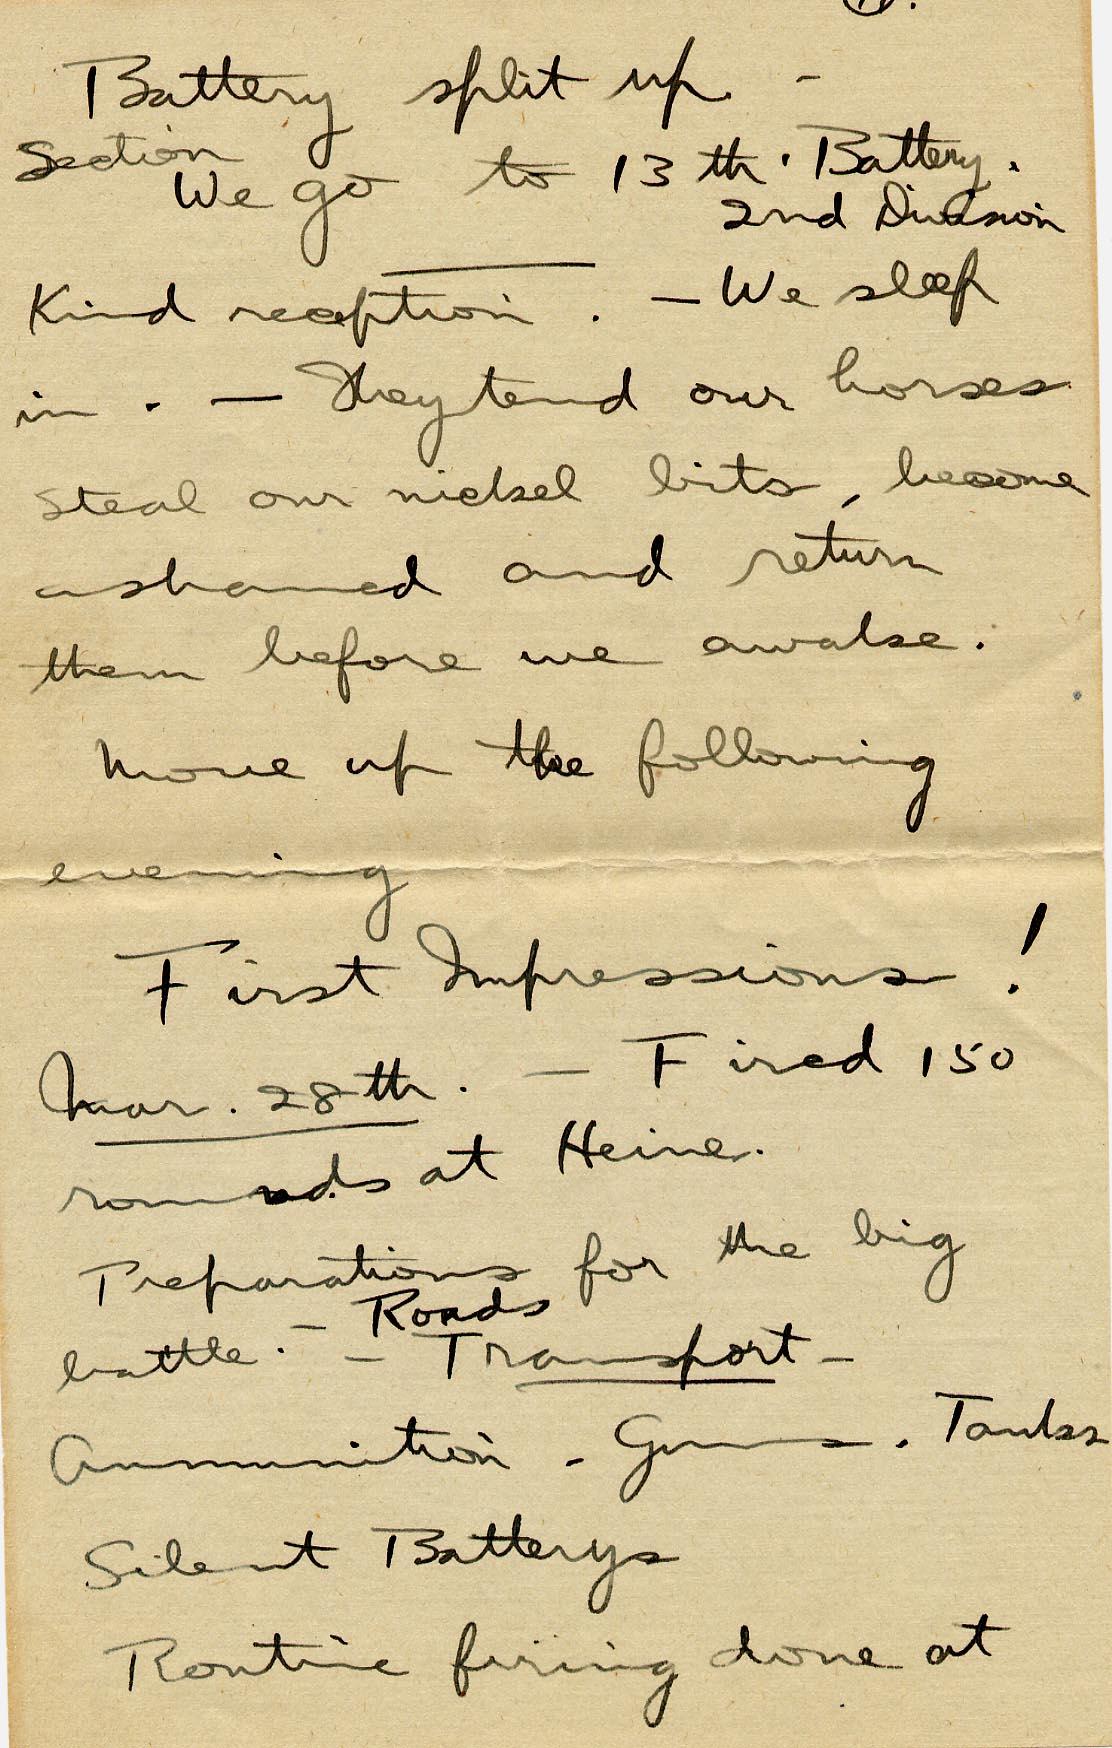 Battery split up -
Section
We go to 13th. Battery.
2nd Division
Kind reception. - We sleep
in. - They tend our horses
steal our nickel bits, become
ashamed and return
them before we awake.
Move up the following
evening
First Impressions!
Mar. 28th. - Fired 150
rounds at Heine.
Preparations for the big
Roads
battle. - - Transport -
Ammunition - Guns. Tanks
Silent Batterys
Routine firing done at